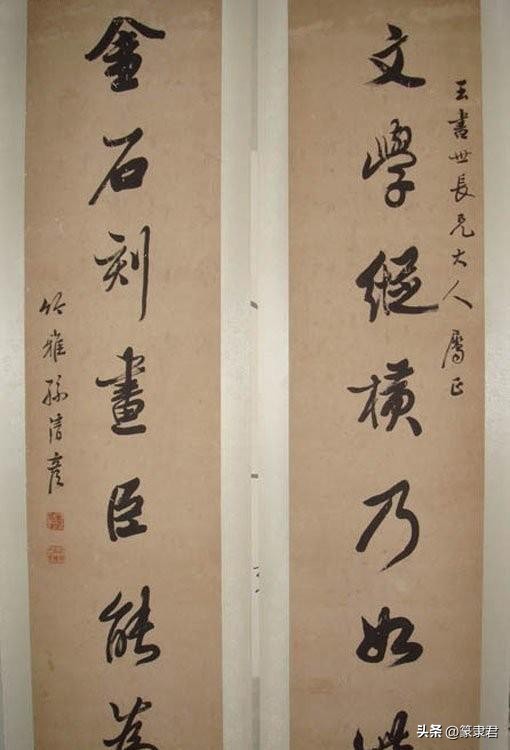 文學縱橫乃如此
玉書世長兄大人屬正
金石刻畫臣能為
竹雅孫清彦
头条 @篆隶君